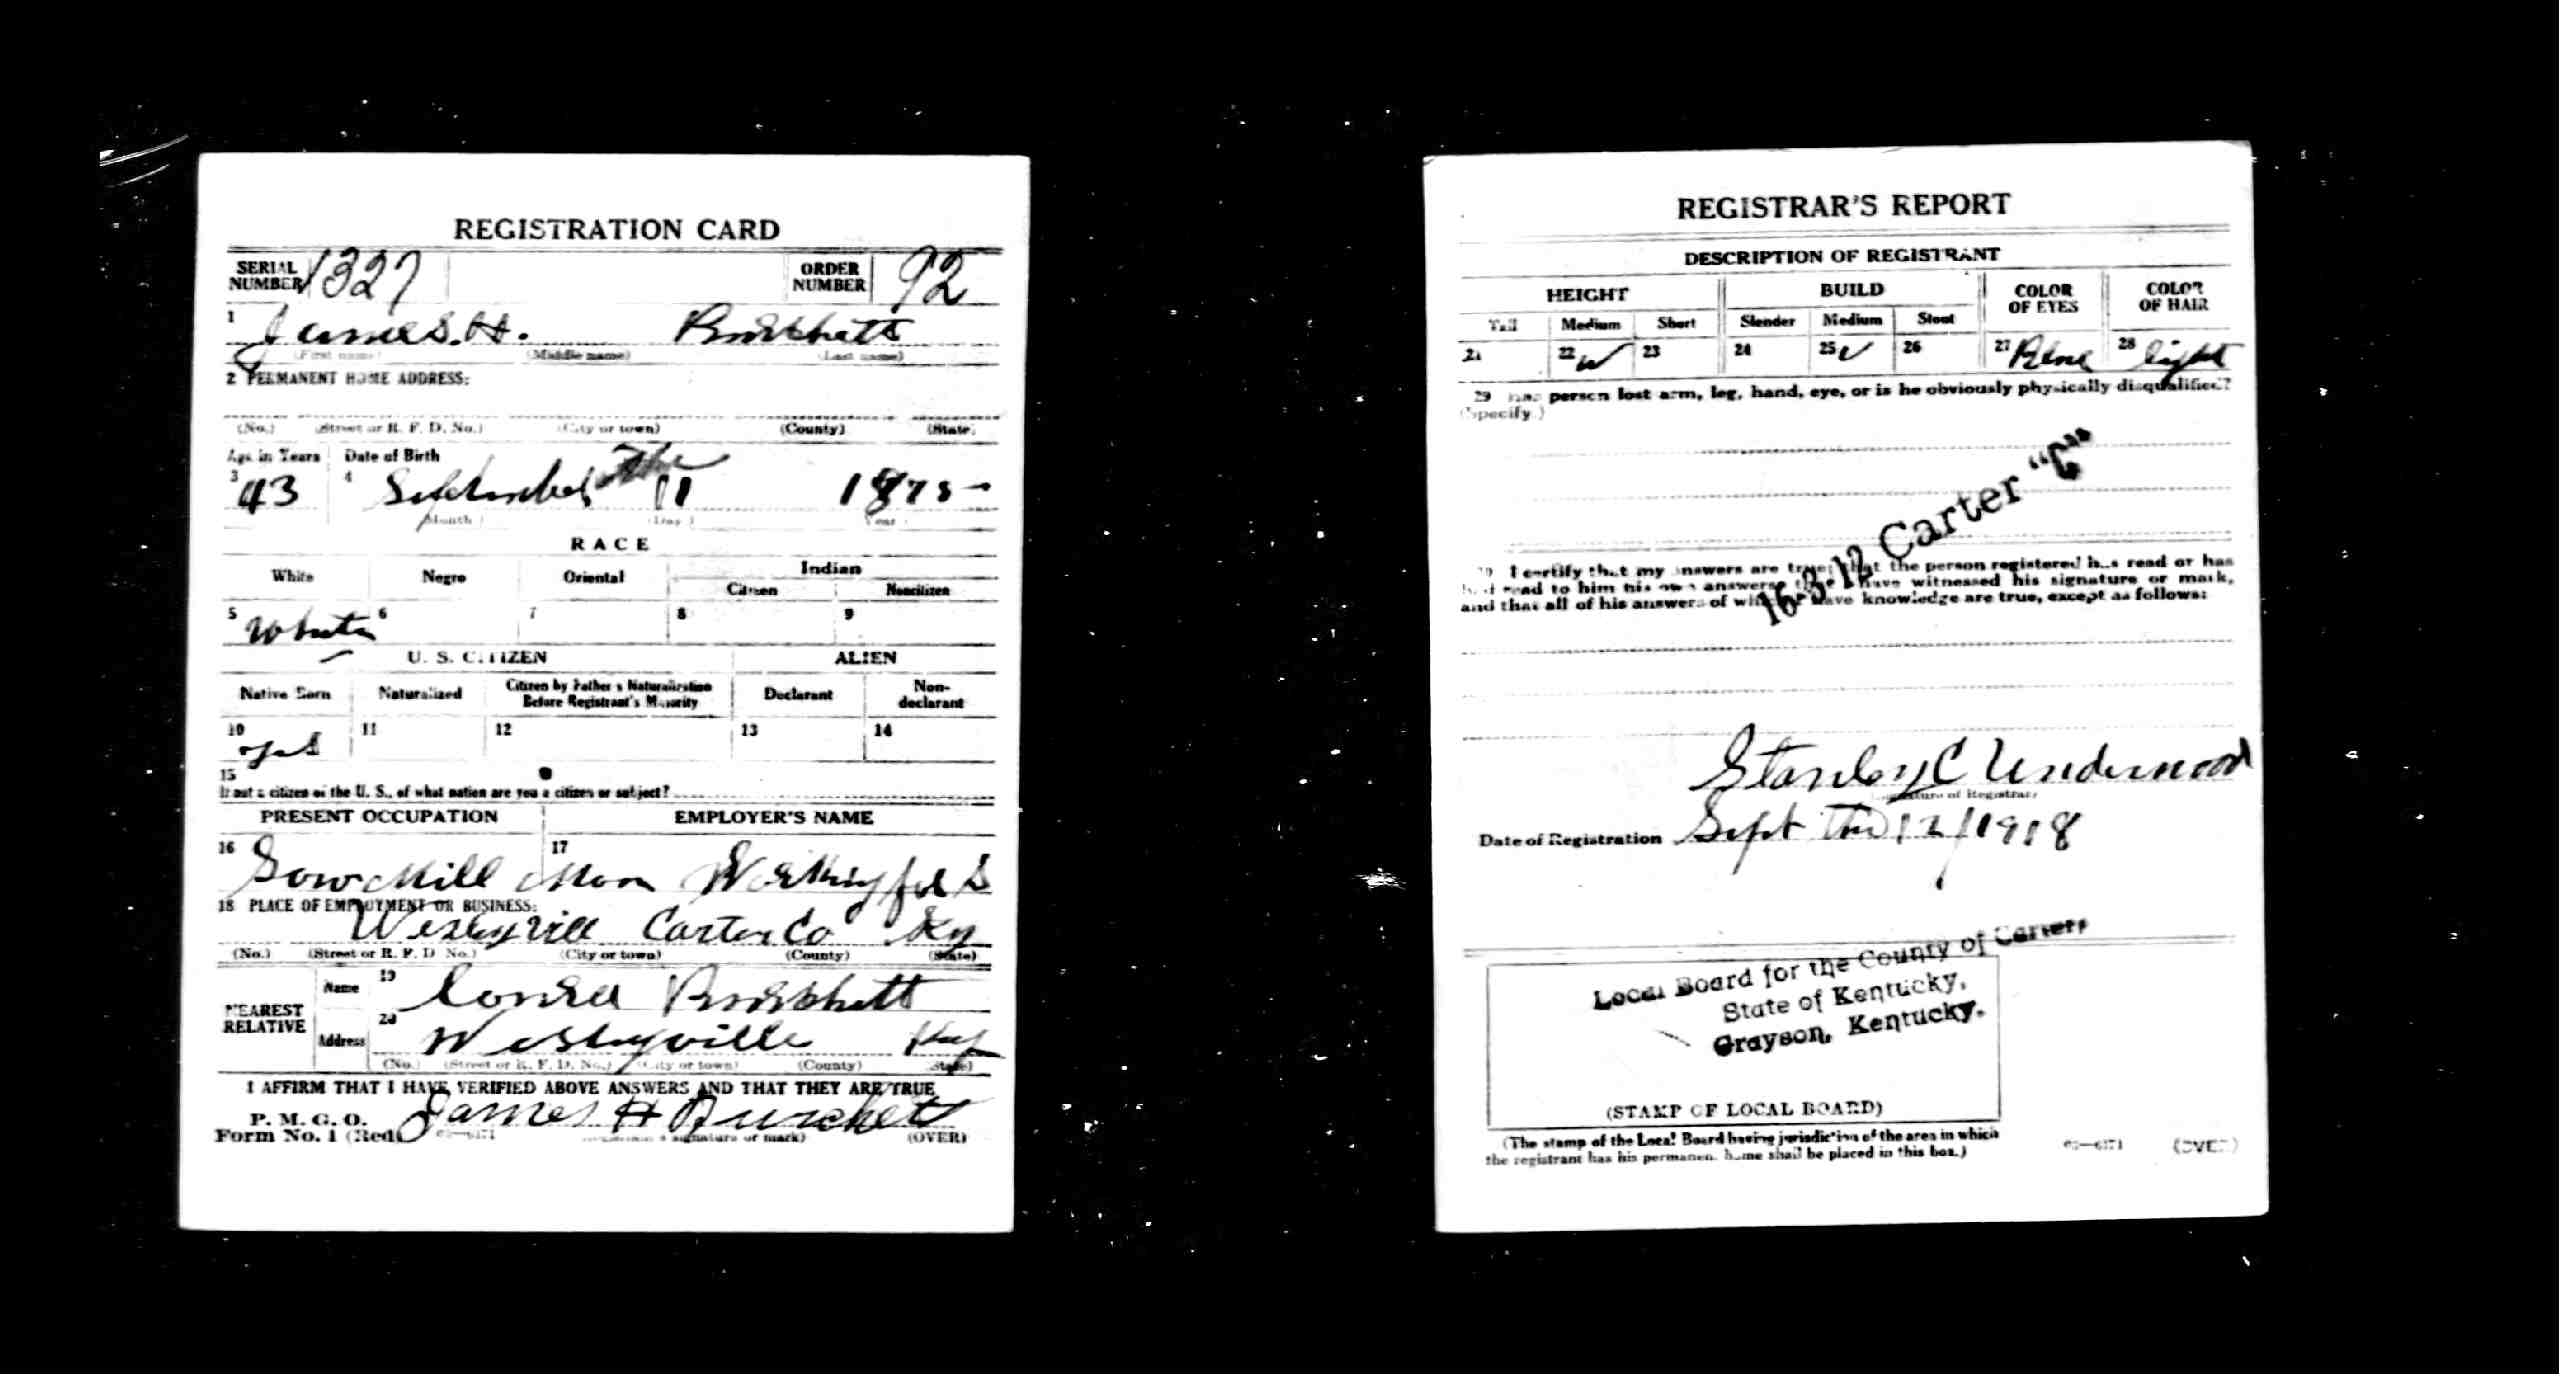 REGISTRATION CARD
SERIAL NUMBER 1327 ORDER NUMBER 92
1 James. H. Burchett
(First name) (Middle name) (Last name)
2 PERMANENT HOME ADDRESS:
(No.) (Street or R. F. D. No.) (City or town) (County) (State)
Age in Years Date of Birth
3 43 4 September the 11 1875
(Month) (Day) (Year)
RACE
White Negro Oriental Indian
Citizen Noncitizen
5 White 6 7 8 9
U. S. CITIZEN ALIEN
Native Born Naturalized Citizen by Father's Naturalization Before Registrant's Majority Declarant Non-declarant
10 yes 11 12 13 14
15
If not a citizen of the U. S., of what nation are you a citizen or subject?
PRESENT OCCUPATION EMPLOYER'S NAME
16 Saw Mill Man 17 Working for S
18 PLACE OF EMPLOYMENT OR BUSINESS:
Wesleyvill Carter Co Ky
(No.) (Street or R. F. D. No.) (City or town) (County) (State)
NEAREST RELATIVE
Name 19 Burchett
Address 20 Wesleyville Ky
(No.) (Street or R. F. D. No.) (City or town) (County) (State)
I AFFIRM THAT I HAVE VERIFIED ABOVE ANSWERS AND THAT THEY ARE TRUE
P. M. G. O.
Form No. 1 (Red) James H Burchett
03—6171 (Registrant's signature or mark) (OVER)
REGISTRAR'S REPORT
DESCRIPTION OF REGISTRANT
HEIGHT BUILD COLOR OF EYES COLOR OF HAIR
Tall Medium Short Slender Medium Stout
21 22 ✓ 23 24 25 ✓ 26 27 Blue 28 light
29 Has person lost arm, leg, hand, eye, or is he obviously physically disqualified?
(Specify.)
16-3-12 Carter "C"
30 I certify that my answers are true; that the person registered has read or has
had read to him his own answers; that I have witnessed his signature or mark,
and that all of his answers of which I have knowledge are true, except as follows:
Stanley C Underwood
(Signature of Registrar)
Date of Registration Sept the 12/1918
Local Board for the County of Carter,
State of Kentucky,
Grayson, Kentucky.
(STAMP OF LOCAL BOARD)
(The stamp of the Local Board having jurisdiction of the area in which
the registrant has his permanent home shall be placed in this box.)
03—6171 (OVER)